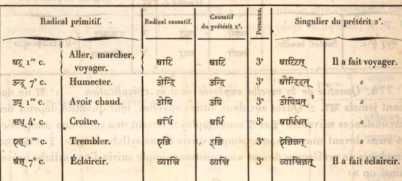 Radical primitif. Radical causatif. Causatif du prétérit 2ᵉ. Personnes. Singulier du prétérit 2ᵉ.
अट् 1ʳᵉ c. Aller, marcher, voyager. आटि आटि 3ᵉ आटिटत् Il a fait voyager.
उन्द् 7ᵉ c. Humecter. उन्दि 3ᵉ औन्दिदत् "
उष् 1ʳᵉ c. Avoir chaud. ओषि उषि 3ᵉ "
ऋध् 4ᵉ c. Croître. अर्धि अर्धि 3ᵉ आर्धिधत् "
एज् 1ʳᵉ c. Trembler. एजि 3ᵉ ऐजिजत् "
7ᵉ c. Éclaircir. 3ᵉ Il a fait éclaircir.